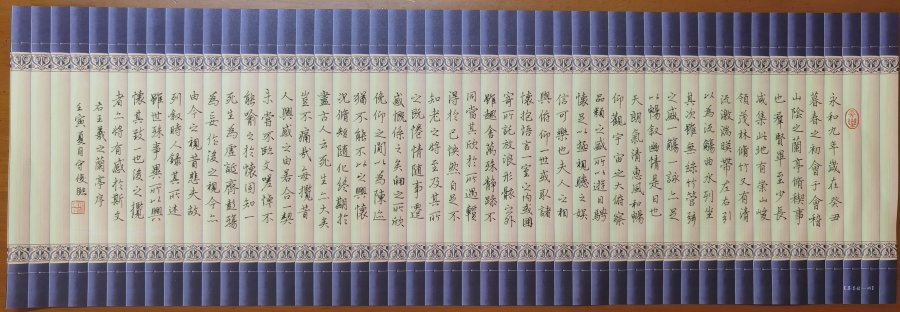 永和九年歲在癸丑
暮春之初會于會稽
山陰之蘭亭脩稧事
也羣賢畢至少長
咸集此地有崇山峻
領茂林脩竹又有清
流激湍暎帶左右引
以為流觴曲水列坐
其次雖無絲竹管弦
之盛一觴一詠亦足
以暢敘幽情是日也
天朗氣清惠風和暢
仰觀宇宙之大俯察
品類之盛所以遊目騁
懷足以極視聽之娛
信可樂也夫人之相
與俯仰一世或取諸
懷抱悟言一室之內或因
寄所託放浪形骸之外
雖趣舍萬殊靜躁不
同當其欣於所遇暫
得於己怏然自足不
知老之將至及其所
之既惓情隨事遷
感慨係之矣向之所欣
俛仰之間以為陳迹
猶不能不以之興懷
況脩短隨化終期於
盡古人云死生亦大矣
豈不痛哉每攬昔
人興感之由若合一契
未嘗不臨文嗟悼不
能喻之於懷固知一
死生為虛誕齊彭殤
為妄作後之視今亦
由今之視昔悲夫故
列敘時人錄其所述
雖世殊事異所以興
懷其致一也後之攬
者亦將有感於斯文
右王羲之蘭亭序
壬寅夏